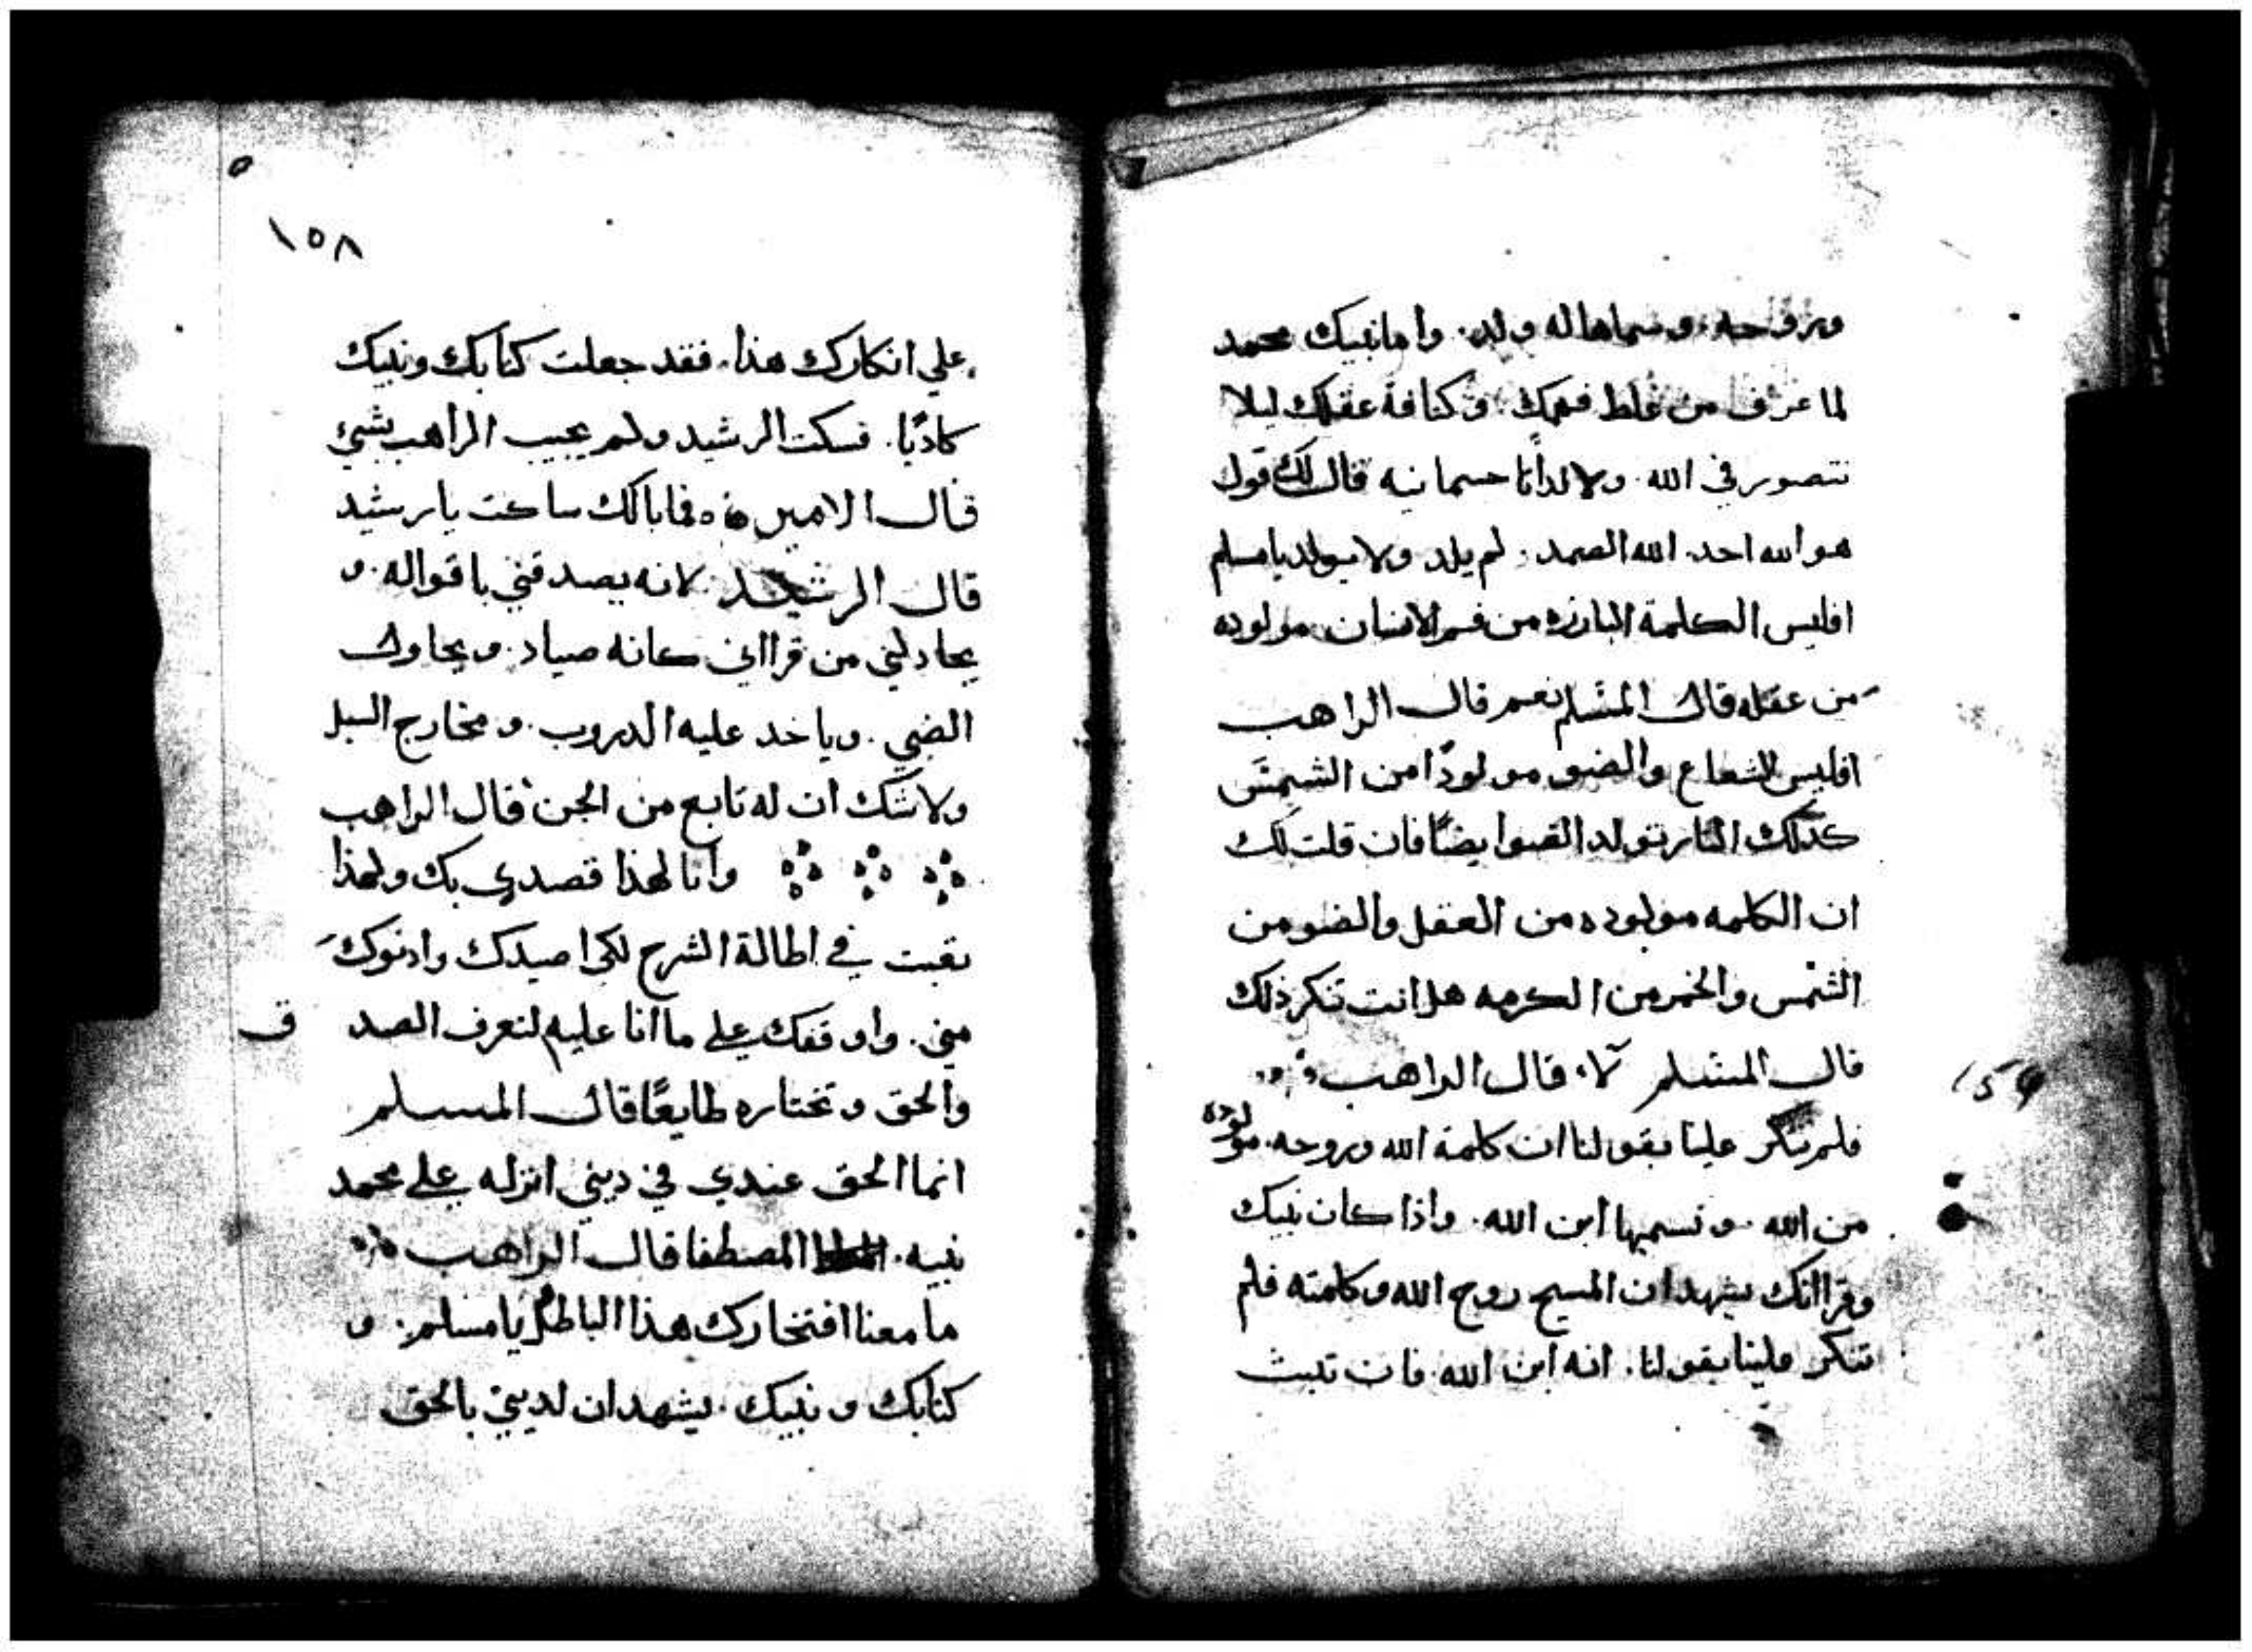 وروحه. وسماها له ولد. واما نبيك محمد
لما عرف من غلط فهمك. وكثافة عقلك ليلا
تتصور في الله. ولادأتا جسمانيه قال لك قول
هو الله احد. الله الصمد. لم يلد ولا يولد يا مسلم
افليس الكلمة البارزه من فم الانسان مولوده
من عقله قال المسلم نعم قال الراهب
افليس الشعاع والضو مولودًا من الشمس
كذلك النار تولد الضوا يضًا فان قلت لك
ان الكلمه مولوده من العقل والضو من
الشمس والخمر من الكرمه هل انت تنكر ذلك
قال المسلم لا، قال الراهب
فلم تنكر علينا بقولنا ان كلمة الله وروحه. مولوده
من الله. ونسميها ابن الله. واذا كان نبيك
وقراانك يشهد ان المسيح روح الله وكلمته فلم
تنكر علينا بقولنا. انه ابن الله. فان تبت
١٥٩
١٥٨
علي انكارك هذا. فقد جعلت كتابك ونبيك
كادبًا. فسكت الرشيد ولم يجيب الراهب بشيء
قال الامير فما بالك ساكت يا رشيد
قال الرشيد لانه يصدقني باقواله. و
يجادلني من قرااني كانه صياد. ويحاول
الضبي. وياخد عليه الدروب. ومخارج السبل
ولا شك ان له تابع من الجن قال الراهب
وانا لهذا قصدي بك ولهذا
تعبت في اطالة الشرح لكي اصيدك وادنوك
مني. واوقفك علي ما انا عليه لتعرف الصدق
والحق وتختاره طايعًا قال المسلم
انما الحق عندي في ديني انزله علي محمد
نبيه. المصطفا قال الراهب
ما معنا افتخارك هذا الباطل يا مسلم. و
كتابك ونبيك. يشهدان لديني بالحق